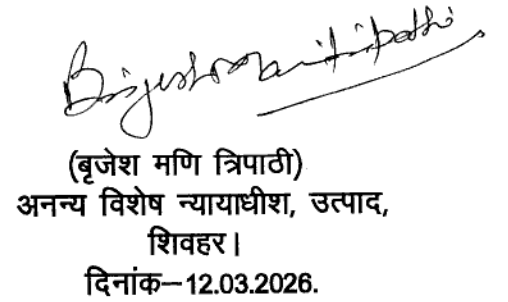 Brijesh Mani Tripathi
(बृजेश मणि त्रिपाठी)
अनन्य विशेष न्यायाधीश, उत्पाद,
शिवहर।
दिनांक–12.03.2026.